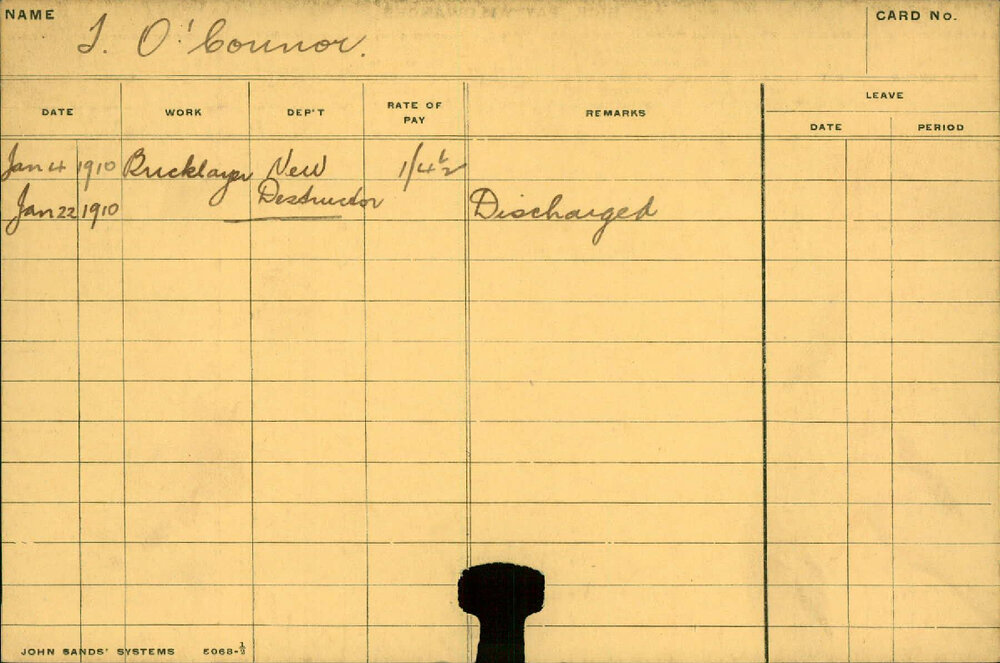 NAME
CARD No.
J. O'Connor.
LEAVE
DATE WORK DEP'T RATE OF PAY REMARKS
DATE PERIOD
Jan 4 1910 Bricklayer New 1/4½
Destructor
Jan 22 1910 Discharged
JOHN SANDS' SYSTEMS 5068-½